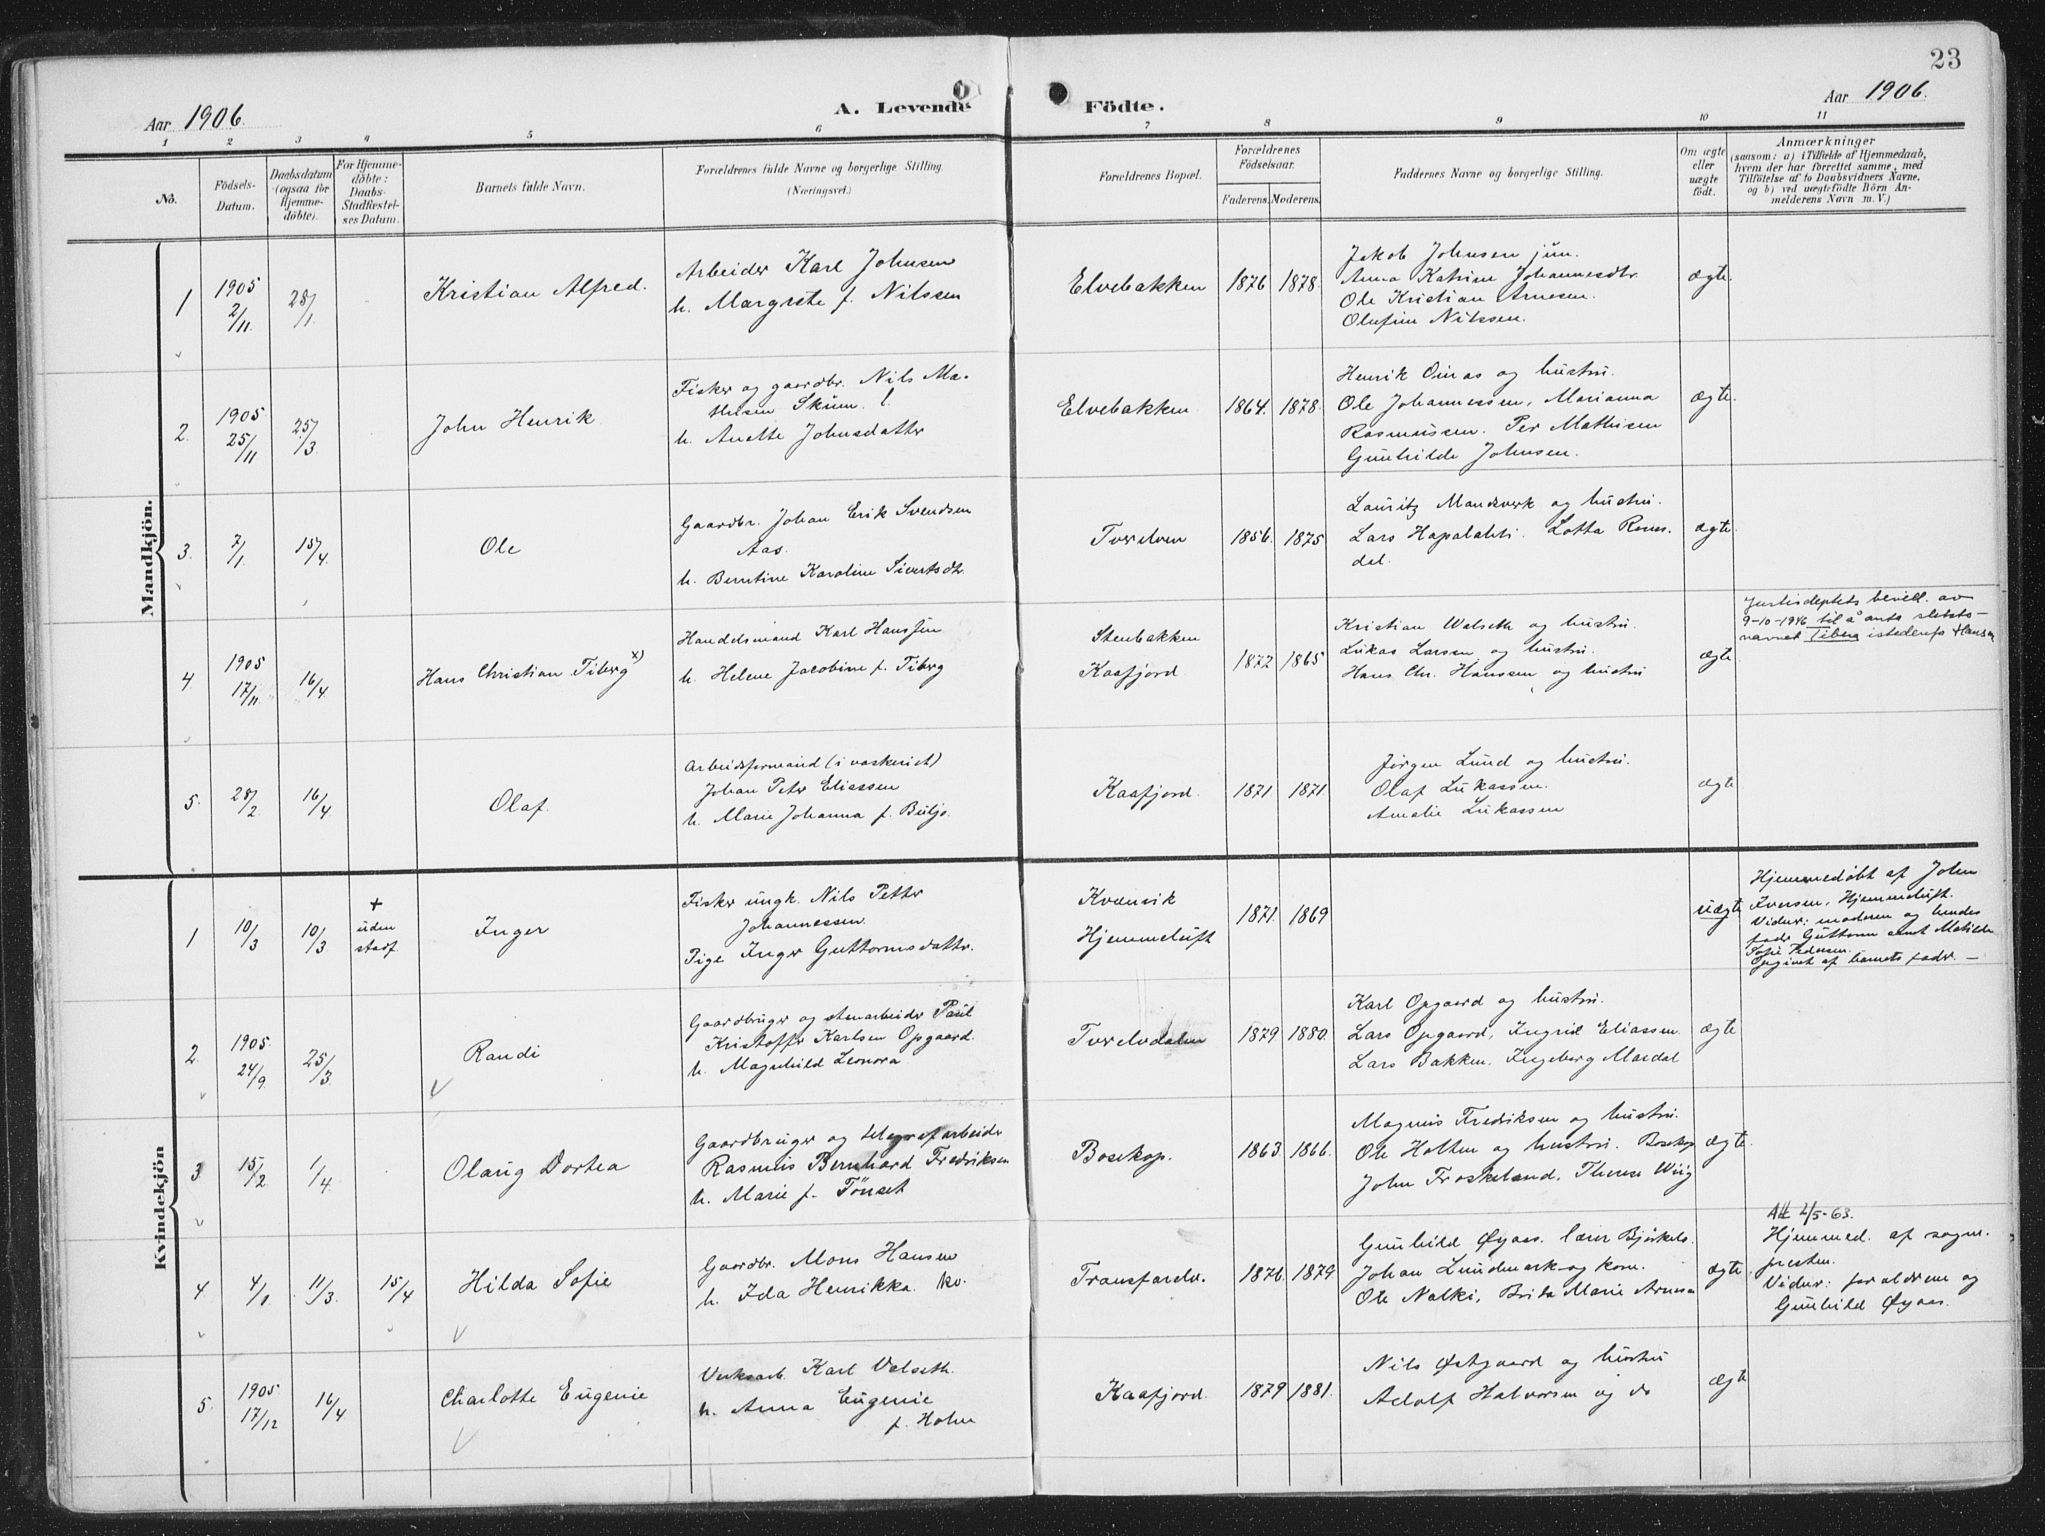 23
Aar 1906.
A. Levende Födte.
Aar 1906.
1 2 3 4 5 6 7 8 9 10 11
No.
Födsels-Datum.
Daabsdatum (ogsaa for Hjemme-döbte).
For Hjemme-döbte: Daabs-Stadfæstel-ses Datum.
Barnets fulde Navn.
Forældrenes fulde Navne og borgerlige Stilling.
(Næringsvei.)
Forældrenes Bopæl.
Forældrenes Födselsaar.
Faderens. Moderens.
Faddernes Navne og borgerlige Stilling.
Om ægte eller uægte födt.
Anmærkninger
(saasom: a) i Tilfælde af Hjemmedaab,
hvem der har forrettet samme, med
Tilföielse af to Daabsvidners Navne,
og b) ved uægtefödte Börn An-
melderens Navn m. V.)
Mandkjön.
1
1905
2/11.
28/1.
Kristian Alfred.
Arbeider Karl Johnsen
h. Margrete f. Nilssen
Elvebakken
1876
1878.
Jakob Johnsen jun.
Anna Katrine Johannesdtr.
Ole Kristian Arnesen.
Olufine Nilssen.
ægte.
2.
1905.
25/11
25/3.
John Henrik
Fisker og gaardbr. Nils Ma-
thisen Skum.
h. Anette Johnsdatter
Elvebakken
1864.
1878.
Henrik Oinas og hustru.
Ole Johannessen, Marianna
Rasmussen. Per Mathisen
Gunhilde Johnsen.
ægte.
3.
7/1.
15/4.
Ole
Gaardbr. Johan Erik Svendsen
Aas.
h. Berntine Karoline Sivertsdtr.
Tverelven
1856.
1875
Lauritz Mandsverk og hustru.
Lars Hapalahti. Lotta Roms-
dal.
ægte.
4
1905
17/11.
16/4.
Hans Christian Tiberg x)
Handelsmand Karl Hanssen
h. Helene Jacobine f. Tiberg
Stenbakken
Kaafjord.
1872
1865
Kristian Walseth og hustru.
Lukas Larsen og hustru.
Hans Chr. Hanssen og hustru
ægte
Justisdeptets bevill. av
9-10-1946 til å anta slekts-
navnet Tiberg istedenfor Hansen
5.
28/2.
16/4.
Olaf.
Arbeidsformand (i vaskeriet)
Johan Peter Eliassen
h. Marie Johanna f. Buljo.
Kaafjord.
1871.
1871.
Jörgen Lund og hustru.
Olaf Lukassen.
Amalie Lukassen
ægte
Kvindekjön
1
10/3.
10/3
+
uden
stadf.
Inger
Fisker ungk. Nils Petter
Johannessen.
Pige Inger Guttormsdatter.
Kvænvik
Hjemmeluft
1871.
1869
uægte
Hjemmedøbt af John
Iversen, Hjemmeluft.
Vidner: moderen og hendes
fader Guttorm samt Matilde
Sofie Pedersen.
Opgivet af barnets fader. —
2.
1905.
24/9.
25/3.
Randi
Gaardbruger og stenarbeider Paul
Kristoffer Karlsen Opgaard.
h. Magnhild Leonora.
Tverelvdalen
1879
1880.
Karl Opgaard og hustru.
Lars Opgaard, Ingrid Eliassen
Lars Bakken. Ingeberg Mardal
ægte
3
15/2
1/4.
Olaug Dortea
Gaardbruger og telegrafarbeider
Rasmus Bernhard Fredriksen
h. Marie f. Tönset
Bosekop.
1863.
1866.
Magnus Fredriksen og hustru.
Ole Holten og hustru. Bosekop
John Froskeland, Therese Wiig
ægte.
4
4/1
11/3.
15/4
Hilda Sofie
Gaardbr. Mons Hansen
h. Ida Henrikka.
Transfardv.
1876.
1879
Gunhild Øyaas. lærer Bjørkels.
Johan Lundmark og kone.
Ole Nalki, Brita Marie Arnesen
ægte
Att 2/5-63.
Hjemmed. af sogne-
presten.
Vidner: forældrene og
Gunhild Øyaas.
5.
1905.
17/12
16/4
Charlotte Eugenie
Verksarb. Karl Valseth.
h. Anna Eugenie
f. Holm
Kaafjord.
1879
1881.
Nils Østgaard og hustru
Adolf Halvorsen og do
ægte